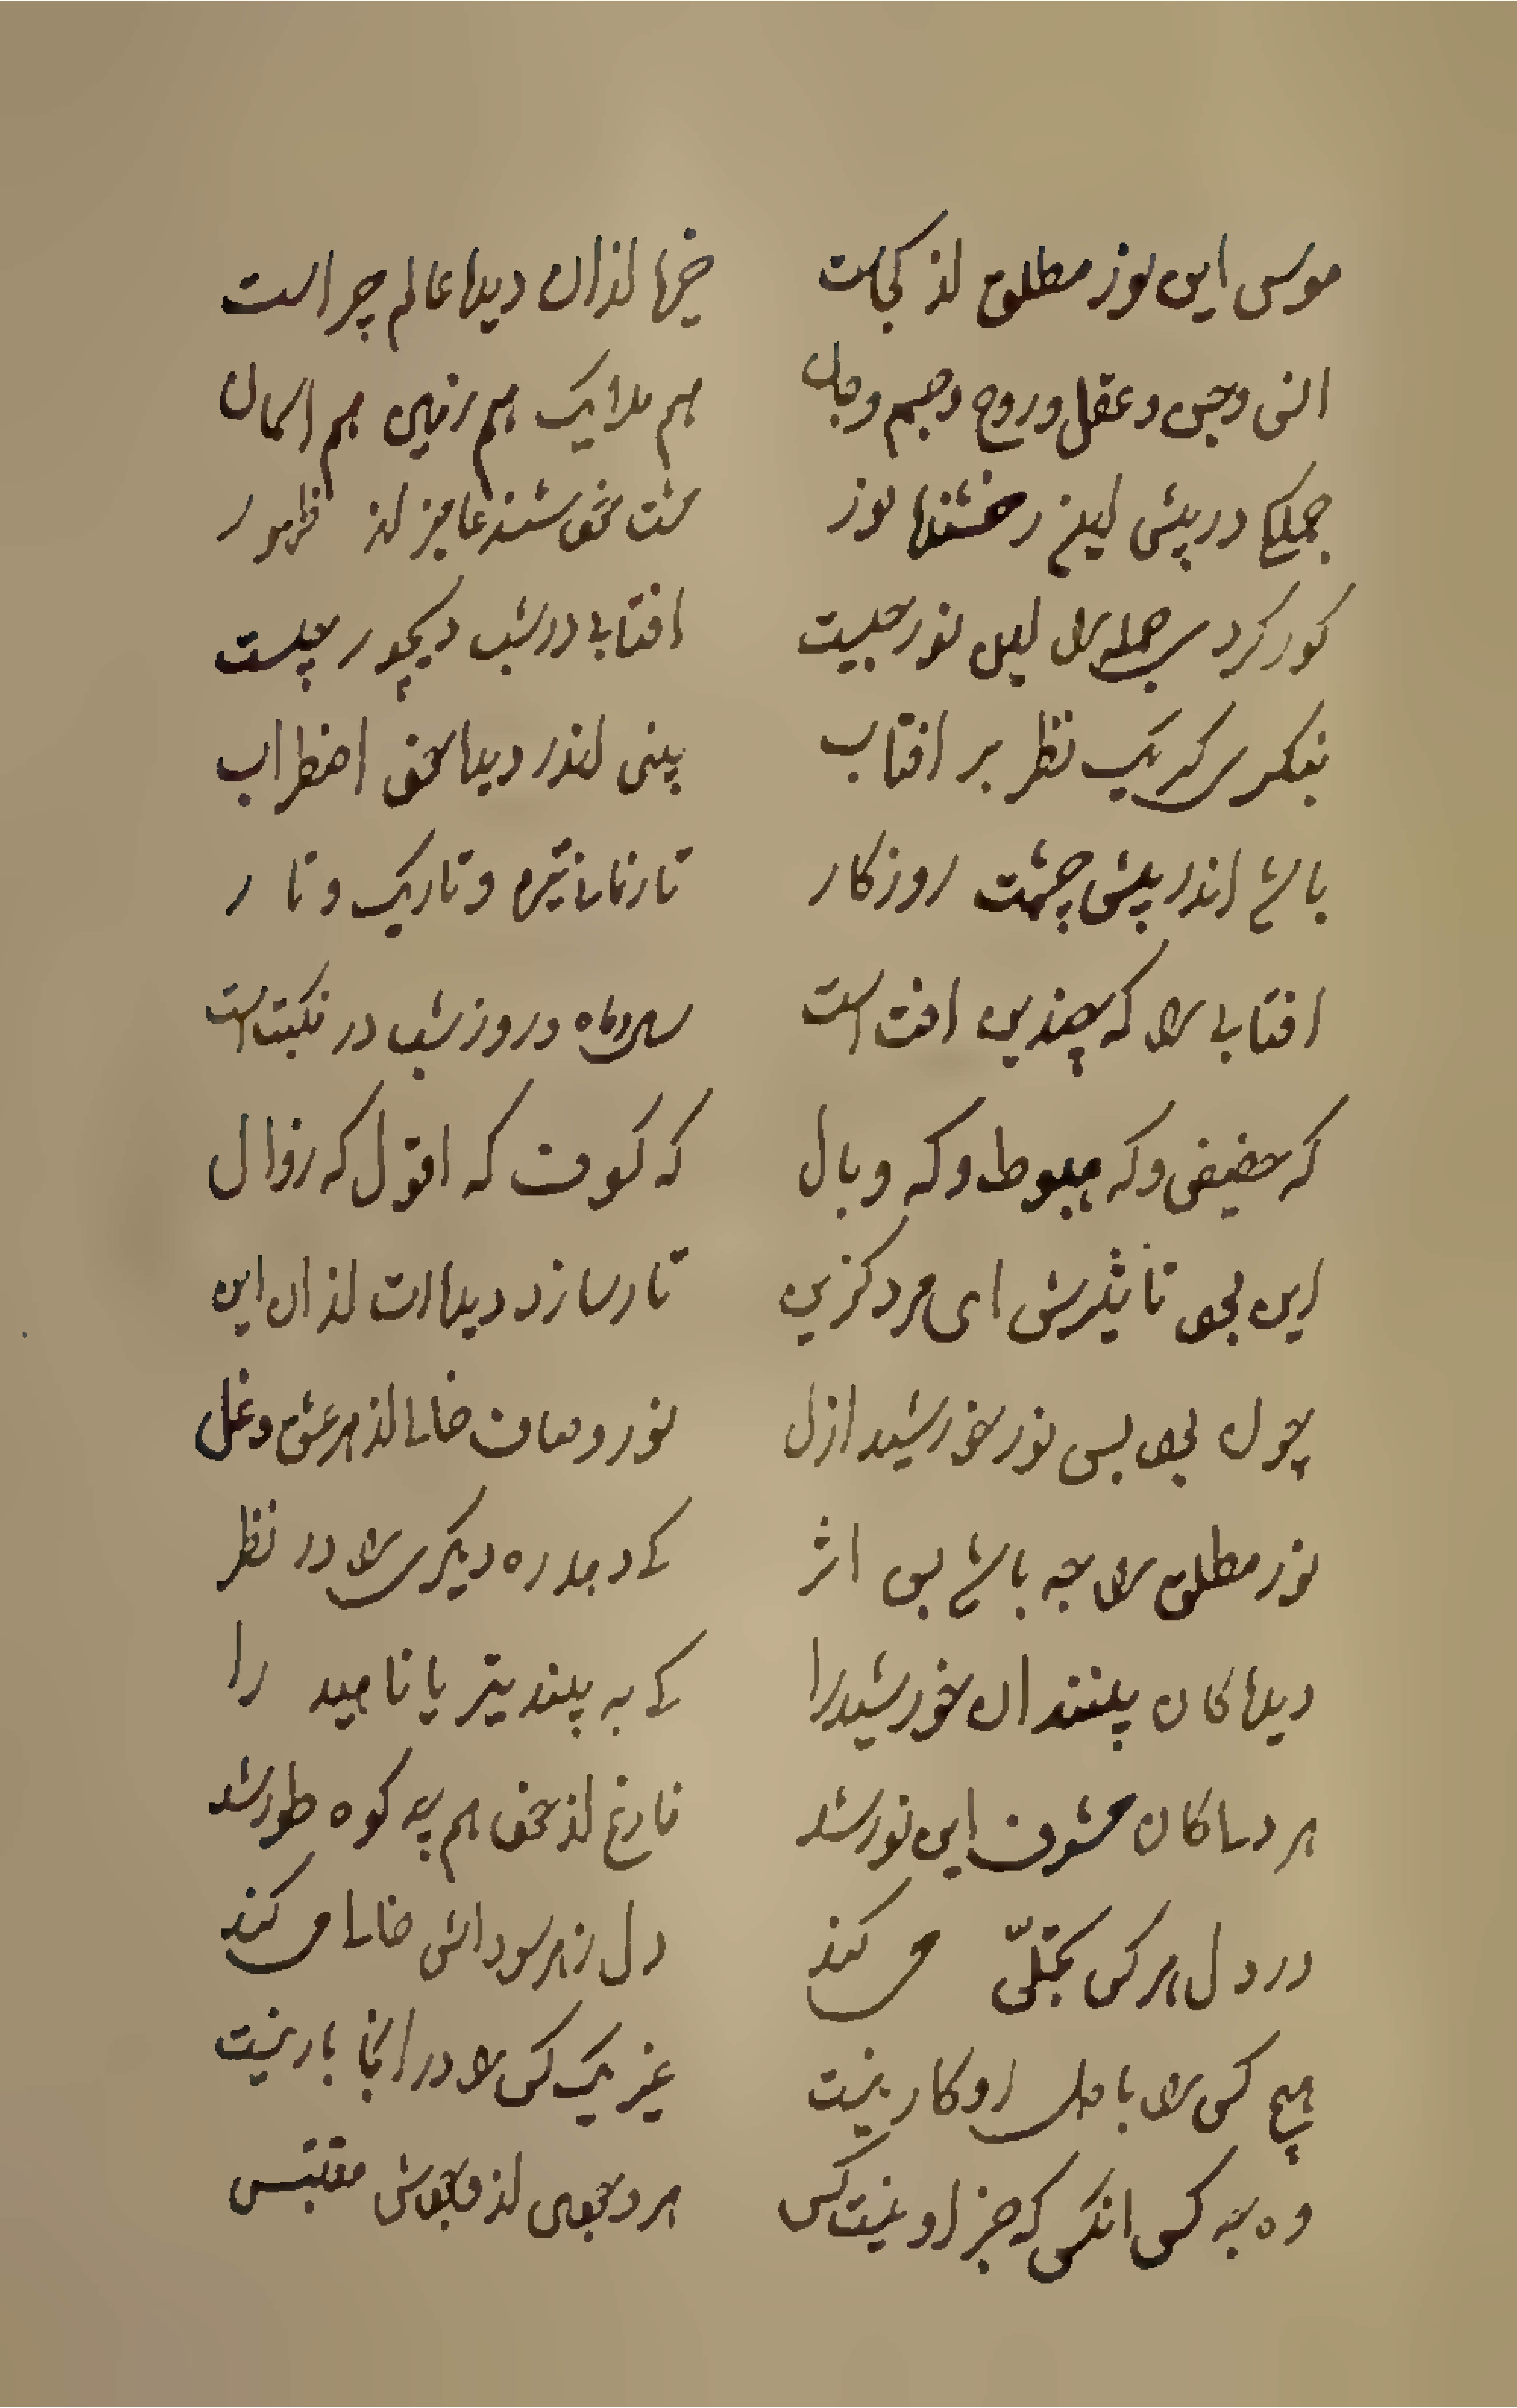 موسی این نور مطلق از کجاست خیره از آن دیده عالم چراست
انس و جن و عقل و روح و جسم و جان هم ملایک هم زمین هم آسمان
جملگی در پیش این رخشنده نور گشت محو شند عاجز از ظهور
کور کرد جمله را این نور چیست آفتابی در شب دیجور چیست
بنکری کر یک نظر بر افتاب بینی اندر دیده محض اضطراب
باشد اندر پیش چشمت روزکار تا زمانی تیره و تاریک و تار
افتابی را که چندین افت است سال و ماه و روز شب در نکبت است
که حضیض و که هبوط و که وبال که کسوف که افول که زوال
این بود تاثیرش ای مرد کزین تار سازد دیده ات از آن این
چون بود پس نور خورشید ازل نور وصاف خالی از هر غش و غل
نور مطلق را چه باشد پس اثر کی دهد ره دیکری را در نظر
دیده کان بیند آن خورشید را کی به بیند تیر یا ناهید را
هر دلی کان مشرق این نور شد فارغ از محض هم به کوه طور شد
در دل هر کس تجلّی می کند دل ز هر سودائش خالی می کند
هیچ کس را با دل او کار نیست غیر یک کس را در انجا بار نیست
وه چه کس انکس که جز او نیست کس هر وجودی از وجودش مقتبس